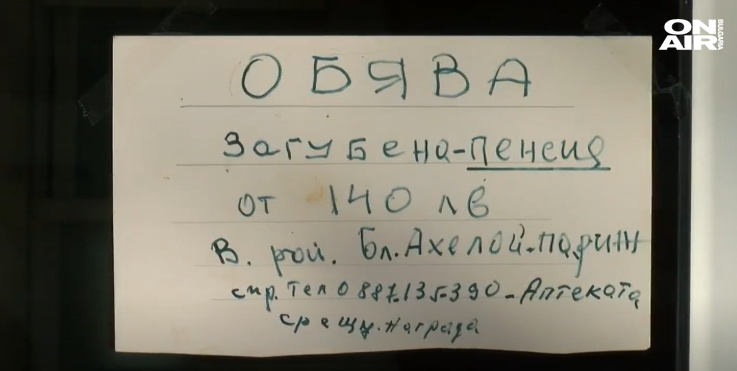 ON
AIR
BULGARIA
ОБЯВА
Загубена-пенсия
от 140 лв
В. рай. Бл. Ахелой-
спр. Тел 0887.135-390-Аптеката
срещу. награда